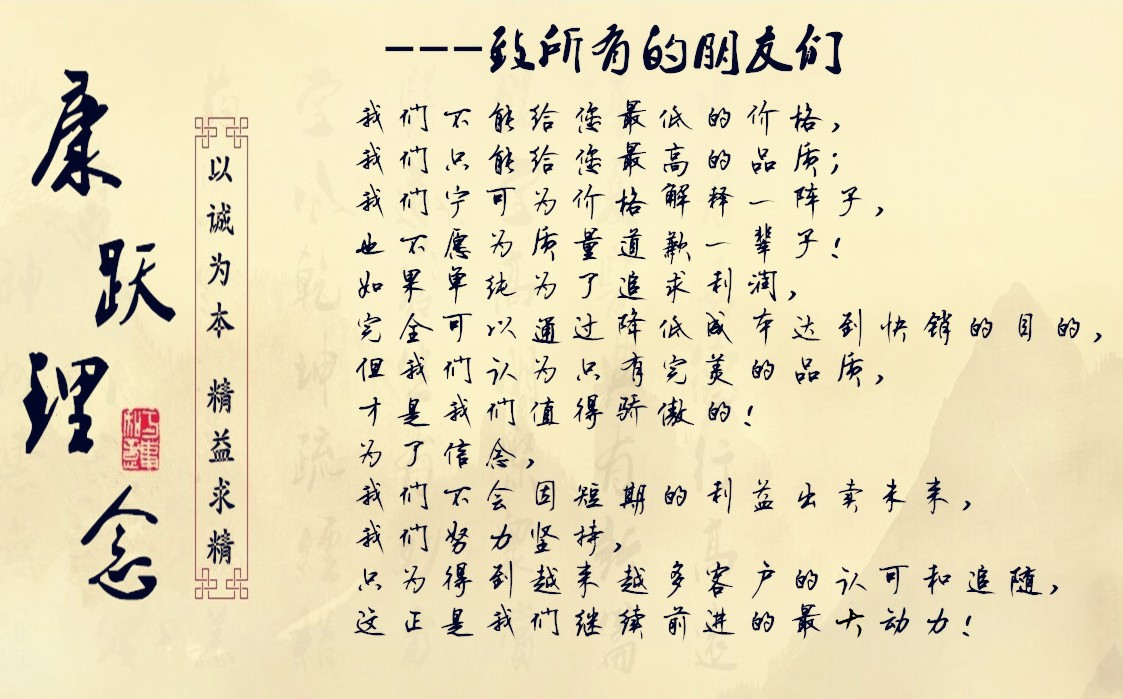 康跃理念
以诚为本 精益求精
---致所有的朋友们
我们不能给您最低的价格，
我们只能给您最高的品质；
我们宁可为价格解释一阵子，
也不愿为质量道歉一辈子！
如果单纯为了追求利润，
完全可以通过降低成本达到快销的目的，
但我们认为只有完美的品质，
才是我们值得骄傲的！
为了信念，
我们不会因短期的利益出卖未来，
我们努力坚持，
只为得到越来越多客户的认可和追随，
这正是我们继续前进的最大动力！